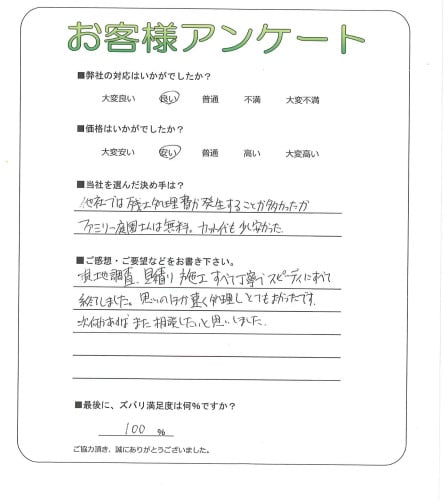 お客様アンケート
■弊社の対応はいかがでしたか？
大変良い 良い 普通 不満 大変不満
■価格はいかがでしたか？
大変安い 安い 普通 高い 大変高い
■当社を選んだ決め手は？
他社では残土処理費が発生することが多かったが
ファミリー庭園さんは無料。カット代も少し安かった
■ご感想・ご要望などをお書き下さい。
現地調査、見積り、施工すべて丁寧でスピーディにすべて
終了しました。思いのほか早く処理しとてもよかったです。
次何かあればまた相談したいと思いました。
■最後に、ズバリ満足度は何％ですか？
100 ％
ご協力頂き、誠にありがとうございました。